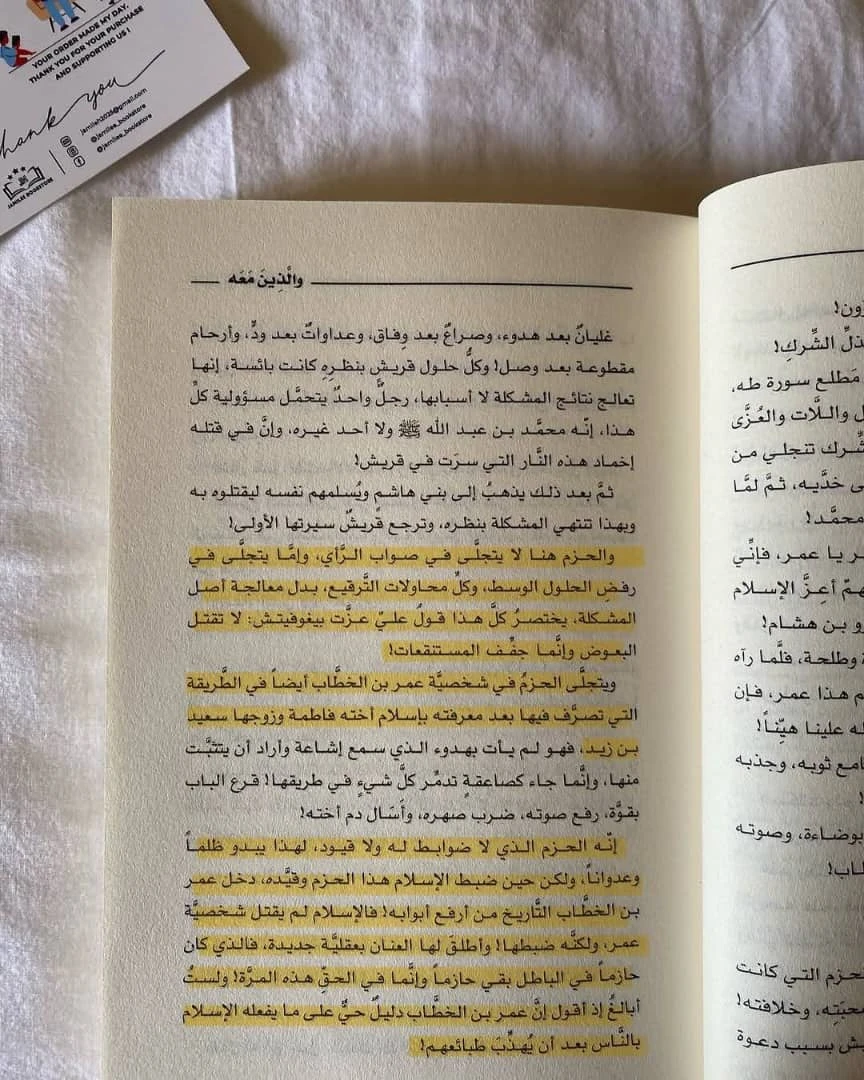 YOUR ORDER MADE MY DAY,
THANK YOU FOR YOUR PURCHASE
AND SUPPORTING US!
thank you
jamileh2025@gmail.com
@jamilea_bookstore
@jamilea_bookstore
JAMILEE BOOKSTORE
والَّذِينَ مَعَه
غليانٌ بعد هدوء، وصراعٌ بعد وِفاق، وعداواتٌ بعد ودٍّ، وأرحام
مقطوعة بعد وصل! وكلُّ حلول قريشٍ بنظرِهِ كانت بائسة، إنها
تعالج نتائج المشكلة لا أسبابها، رجلٌ واحدٌ يتحمَّل مسؤولية كلِّ
هذا، إنَّه محمَّد بن عبد الله ﷺ ولا أحد غيره، وإنَّ في قتله
إخماد هذه النَّار التي سرَت في قريش!
ثمَّ بعد ذلك يذهبُ إلى بني هاشمٍ ويُسلمهم نفسه ليقتلوه به
وبهذا تنتهي المشكلة بنظره، وترجع قريشٌ سيرتها الأولى!
والحزم هنا لا يتجلَّى في صواب الرَّأي، وإمَّا يتجلَّى في
رفضِ الحلول الوسط، وكلِّ محاولات التَّرقيع، بدل معالجة أصل
المشكلة، يختصرُ كلَّ هذا قولُ عليّ عزَّت بيغوفيتش: لا تقتل
البعوض وإنَّما جفِّف المستنقعات!
ويتجلَّى الحزمُ في شخصيَّة عمر بن الخطَّاب أيضاً في الطَّريقة
التي تصرَّف فيها بعد معرفته بإسلام أخته فاطمة وزوجها سعيد
بن زيد، فهو لم يأت بهدوء الذي سمع إشاعة وأراد أن يتثبَّت
منها، وإنَّما جاء كصاعقةٍ تدمِّر كلَّ شيءٍ في طريقها! قرع الباب
بقوَّة، رفع صوته، ضرب صهره، وأَسَال دم أخته!
إنَّه الحزم الذي لا ضوابط له ولا قيود، لهذا يبدو ظلماً
وعدواناً، ولكن حين ضبط الإسلام هذا الحزم وقيَّده، دخل عمر
بن الخطَّاب التَّأريخ من أرفع أبوابه! فالإسلام لم يقتل شخصيَّة
عمر، ولكنَّه ضبطها! وأطلقَ لها العنان بعقليَّة جديدة، فالذي كان
حازماً في الباطل بقي حازماً وإنَّما في الحقِّ هذه المرَّة! ولستُ
أبالغُ إذ أقول إنَّ عمر بن الخطَّاب دليلٌ حيٌّ على ما يفعله الإسلام
بالنَّاس بعد أن يُهذِّبَ طبائعهم!
ذلِّ الشِّركِ!
مَطلع سورة طه،
واللَّات والعُزَّى
شِّرك تنجلي من
خدَّيه، ثمَّ لمَّا
محمَّد!
يا عمر، فإنِّي
أعِزَّ الإسلام
بن هشام!
وطلحة، فلَّما رآه
هذا عمر، فإن
علينا هيِّناً!
ثوبه، وجذبه
بوضاءة، وصوته
لحزم التي كانت
وخلافته!
بسبب دعوة